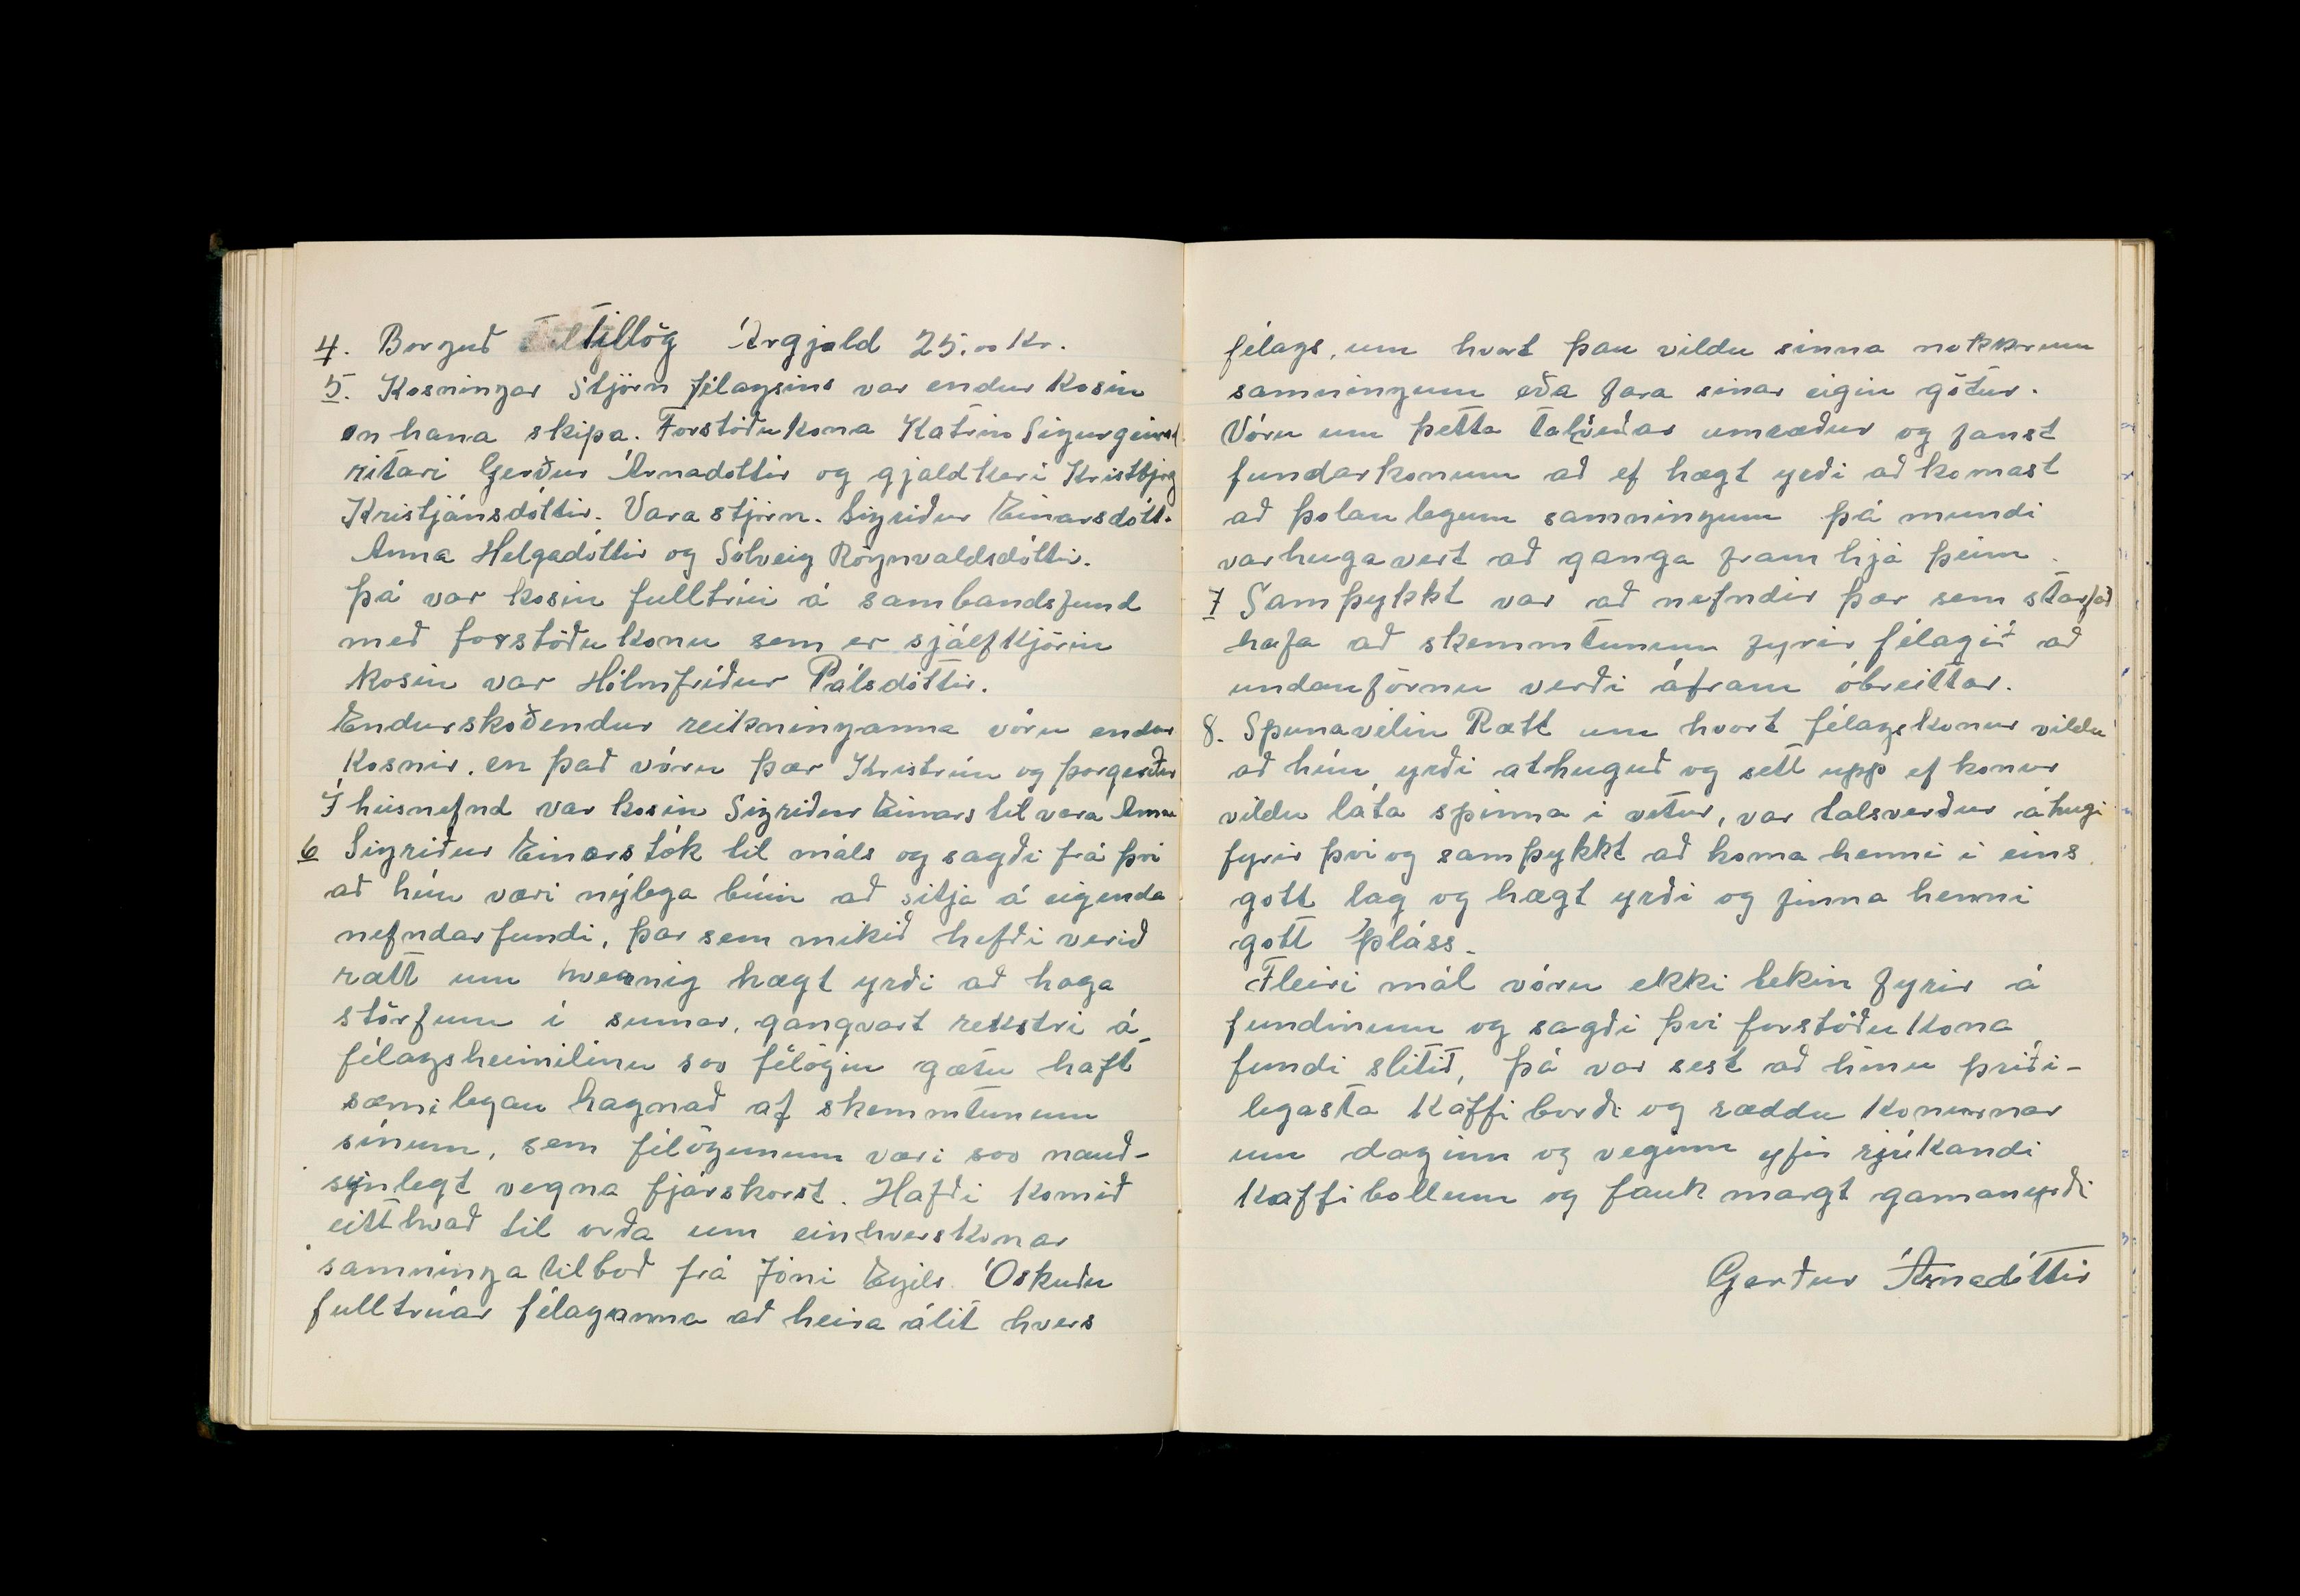 4. Borguð tillög Árgjald 25.00 kr.
5. Kosningar Stjórn félagsins var endur kosin
en hana skipa. Forstöðukona Katrín Sigurgeirsd.
ritari Gerður Árnadóttir og gjaldkeri Kristbjög
Kristjánsdóttir. Vara stjórn. Sigriður Einarsdótt.
Anna Helgadóttir og Sólveig Rögnvaldsdóttir.
þá var kosin fulltrúi á sambandsfund
með forstöðukonu sem er sjálfkjörin
kosin var Hólmfríður Pálsdóttir.
Endurskoðendur reikninganna vóru endur
kosnir. en það vóru þær Kristrún og þorgerður
Í húsnefnd var kosin Sigriður Einars til vara Anna
6 Sigriður Einars tók til máls og sagði frá því
að hún væri nýlega búin að sitja á eigenda
nefndarfundi, þar sem mikið hefði verið
rætt um hvernig hægt yrði að haga
störfum í sumar, gangvart rekstri á
félagsheimilinu svo félögin gætu haft
sæmilegan hagnað af skemmtunum
sínum, sem félögunum væri svo nauð-
synlegt vegna fjárskorst. Hafði komið
eitthvað til orða um einhverskonar
samninga tilboð frá Jóni Egils. Óskuðu
fulltrúar félaganna að heira álit hvers
félags, um hvort þau vildu sinna nokkrum
samningum eða fara sinar eigin götur.
Vóru um þetta umræður og fanst
fundarkonum að ef hægt yrði að komast
að þolanlegum samningum þá mundi
varhugavert að ganga fram hjá þeim.
7 Samþykkt var að nefndir þær sem starfað
hafa að skemmtunum fyrir félagið að
undanförnu verði áfram óbreittar.
8. Spunavélin Rætt um hvort félagskonur vildu
að hún yrði athuguð og sett upp ef konur
vildu láta spinna í vetur, var talsverður áhugi
fyrir því og samþykkt að koma henni í eins
gott lag og hægt yrði og finna henni
gott pláss.
Fleiri mál vóru ekki tekin fyrir á
fundinum og sagði því forstöðukona
fundi slitið, þá var sest að hinu príði-
legasta kaffi borði og ræddu konurnar
um daginn og veginn yfir rjúkandi
kaffibollum og fauk margt gamanyrði
Gerður Árnadóttir